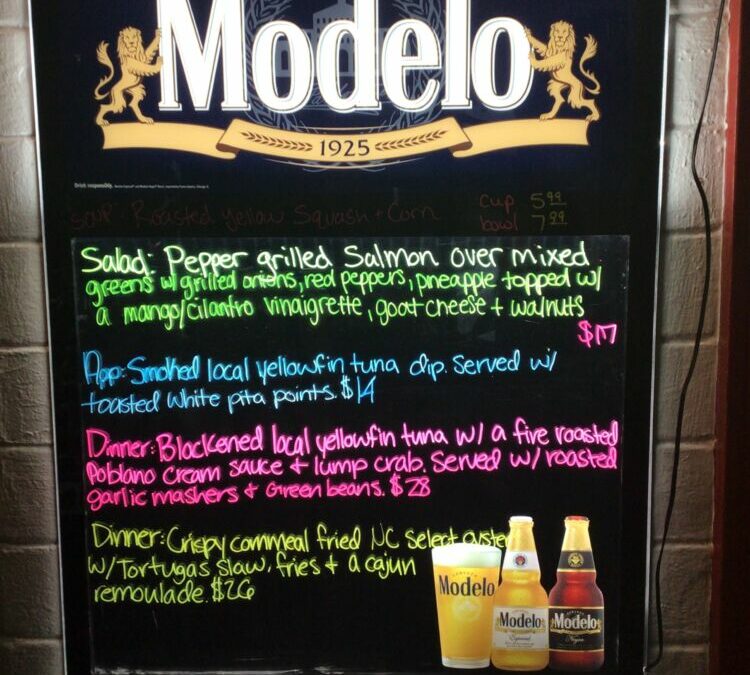 Modelo
1925
Drink responsibly.
Soup: Roasted Yellow Squash + Corn
cup 5.99
bowl 7.99
Salad: Pepper grilled Salmon over mixed
greens w/ grilled onions, red peppers, pineapple topped w/
a mango/cilantro vinaigrette, goat cheese + walnuts
$17
App: Smoked local yellowfin tuna dip. Served w/
toasted white pita points. $14
Dinner: Blackened local yellowfin tuna w/ a fire roasted
Poblano cream sauce + lump crab. Served w/ roasted
garlic mashers + Green beans. $28
Dinner: Crispy cornmeal fried NC Select oyster
w/ Tortugas slaw, fries + a cajun
remoulade. $26
Modelo
Modelo
Especial
Modelo
Negra